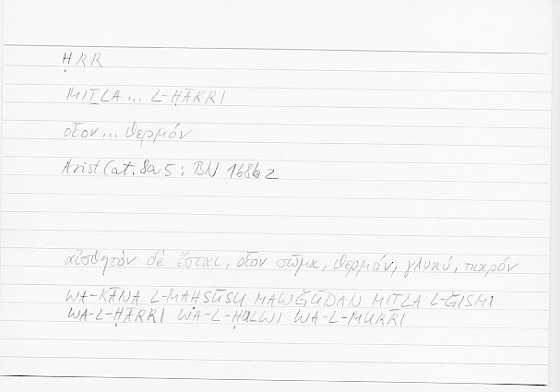 ḤRR
MIṮLA... L-ḤĀRRI
οἷον... θερμόν
Arist Cat. 8a5 : BN 168b2
αἰσθητὸν δὲ ἔσται, οἷον σῶμα, θερμόν, γλυκύ, πικρόν
WA-KĀNA L-MAḤSŪSU MAWǦŪDAN MIṮLA L-ǦISMI
WA-L-ḤĀRRI WA-L-ḤULWI WA-L-MURRI